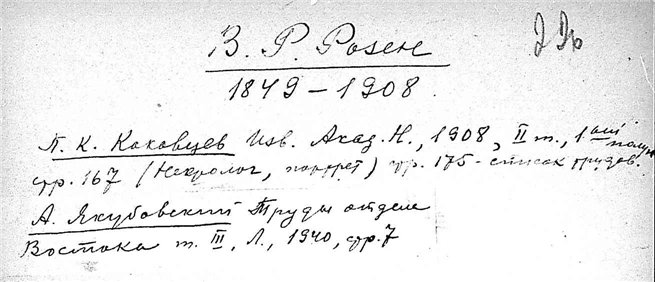 В. Р. Розен
1849 – 1908.
П. К. Коковцев Изв. Акад. Н., 1908, II т., 1ый полут.
стр. 167 (Некролог, портрет) стр. 175 - список трудов.
А. Якубовский Труды отдела
Востока т. III, Л., 1940, стр. 7